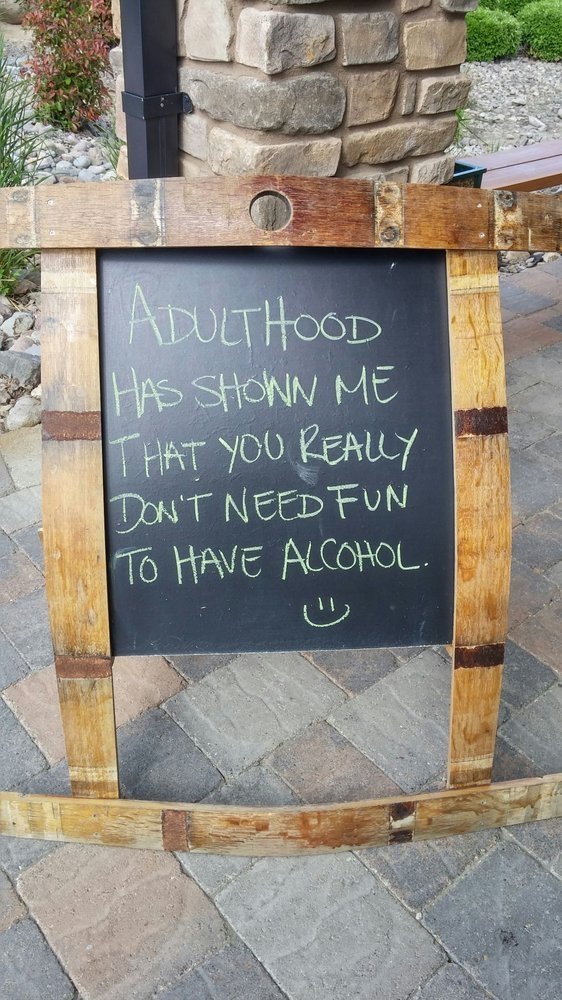 ADULTHOOD
HAS SHOWN ME
THAT YOU REALLY
DON'T NEED FUN
TO HAVE ALCOHOL.